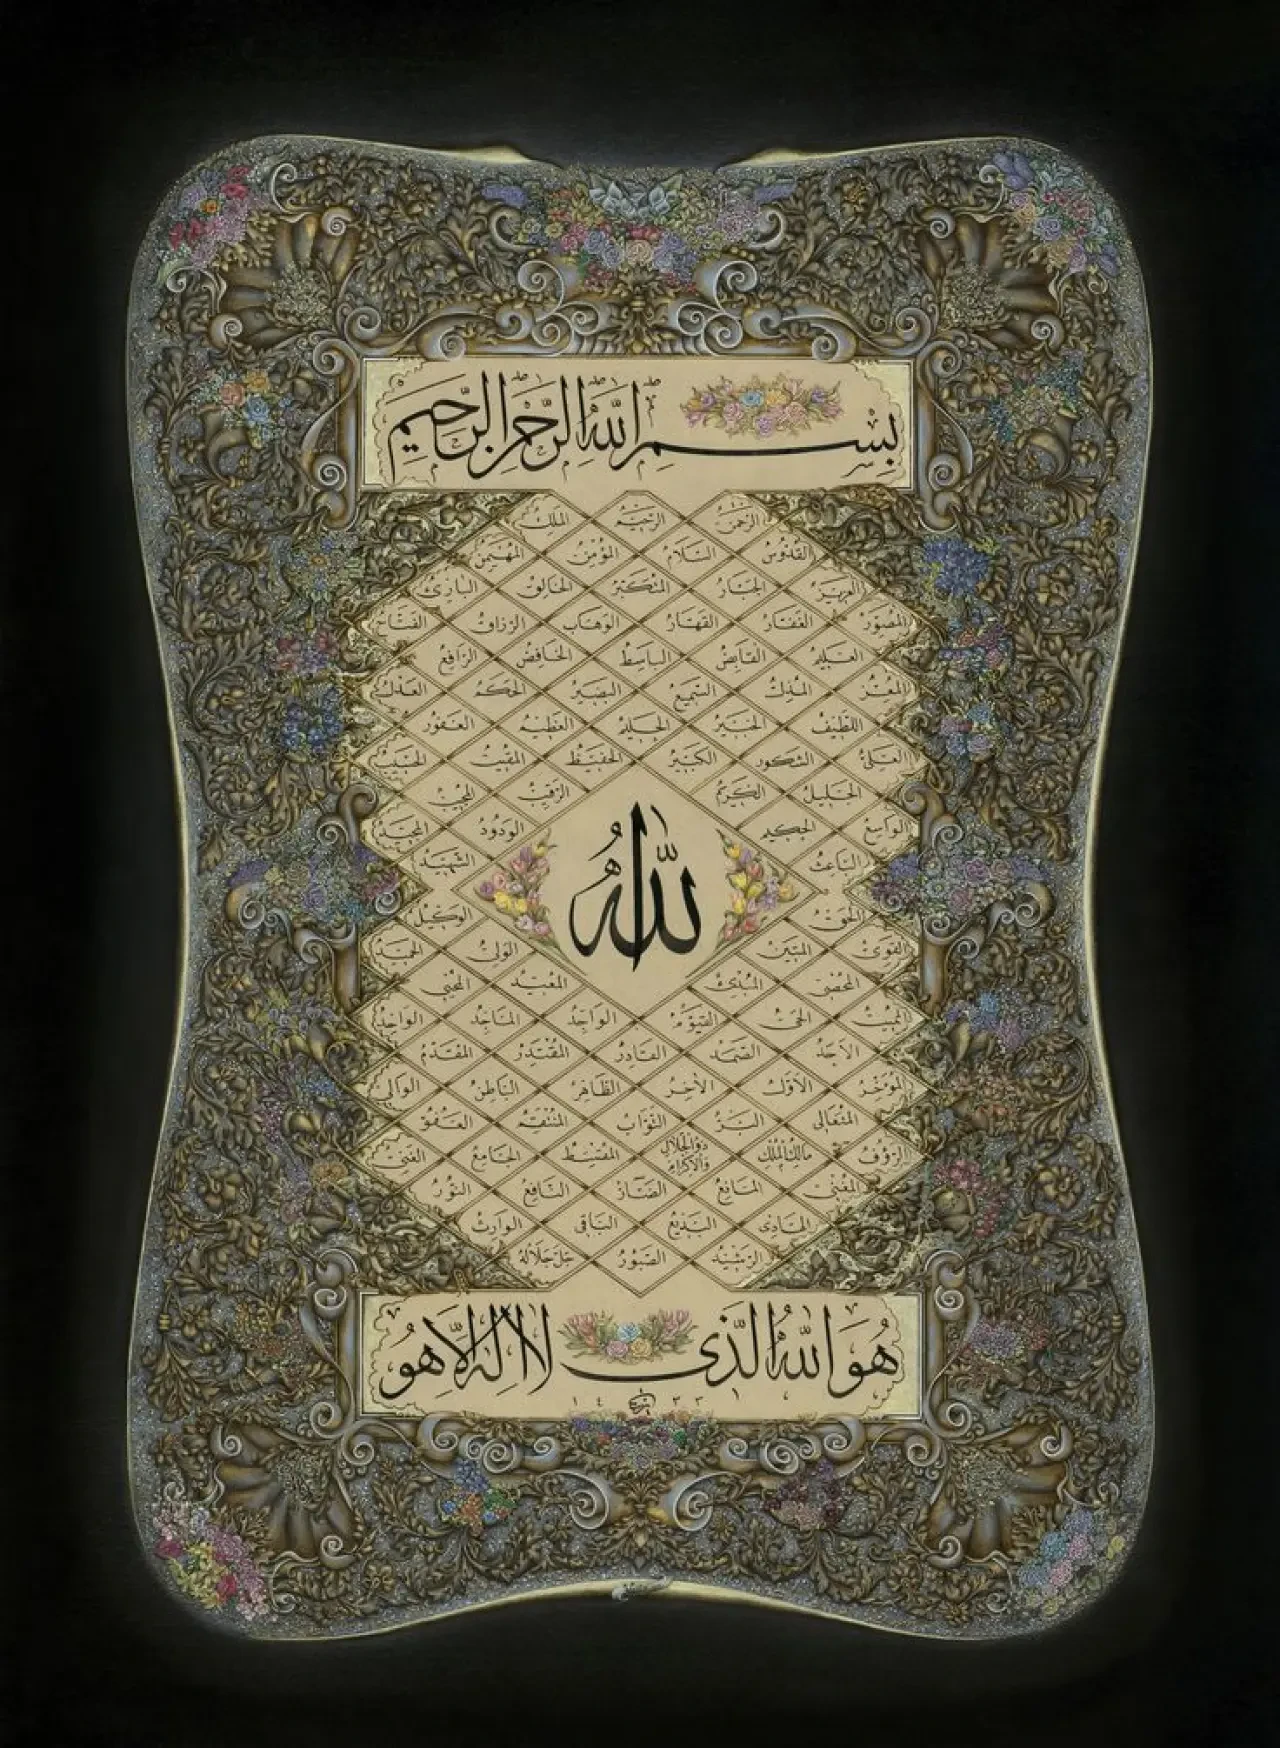 بِسْمِ اللهِ الرَّحْمٰنِ الرَّحِيمِ
الرَّحْمٰنُ الرَّحِيمُ الْمَلِكُ
الْقُدُّوسُ السَّلَامُ الْمُؤْمِنُ الْمُهَيْمِنُ
الْعَزِيزُ الْجَبَّارُ الْمُتَكَبِّرُ الْخَالِقُ الْبَارِئُ
الْمُصَوِّرُ الْغَفَّارُ الْقَهَّارُ الْوَهَّابُ الرَّزَّاقُ الْفَتَّاحُ
الْعَلِيمُ الْقَابِضُ الْبَاسِطُ الْخَافِضُ الرَّافِعُ
الْمُعِزُّ الْمُذِلُّ السَّمِيعُ الْبَصِيرُ الْحَكَمُ الْعَدْلُ
اللَّطِيفُ الْخَبِيرُ الْحَلِيمُ الْعَظِيمُ الْغَفُورُ
الْعَلِيُّ الشَّكُورُ الْكَبِيرُ الْحَفِيظُ الْمُقِيتُ الْحَسِيبُ
الْجَلِيلُ الْكَرِيمُ الرَّقِيبُ الْمُجِيبُ
الْوَاسِعُ الْحَكِيمُ الْوَدُودُ الْمَجِيدُ
الْبَاعِثُ الشَّهِيدُ
اللهُ
الْحَقُّ الْوَكِيلُ
الْقَوِيُّ الْمَتِينُ الْوَلِيُّ الْحَمِيدُ
الْمُحْصِي الْمُبْدِئُ الْمُعِيدُ الْمُحْيِي
الْمُمِيتُ الْحَيُّ الْقَيُّومُ الْوَاجِدُ الْمَاجِدُ الْوَاحِدُ
الْأَحَدُ الصَّمَدُ الْقَادِرُ الْمُقْتَدِرُ الْمُقَدِّمُ
الْمُؤَخِّرُ الْأَوَّلُ الْآخِرُ الظَّاهِرُ الْبَاطِنُ الْوَالِي
الْمُتَعَالِي الْبَرُّ التَّوَّابُ الْمُنْتَقِمُ الْعَفُوُّ
الرَّؤُوفُ مَالِكُ الْمُلْكِ ذُو الْجَلَالِ وَالْإِكْرَامِ الْمُقْسِطُ الْجَامِعُ الْغَنِيُّ
الْمُغْنِي الْمَانِعُ الضَّارُّ النَّافِعُ النُّورُ
الْهَادِي الْبَدِيعُ الْبَاقِي الْوَارِثُ
الرَّشِيدُ الصَّبُورُ جَلَّ جَلَالُهُ
هُوَ اللهُ الَّذِي لَا إِلٰهَ إِلَّا هُوَ
١٤٣٣